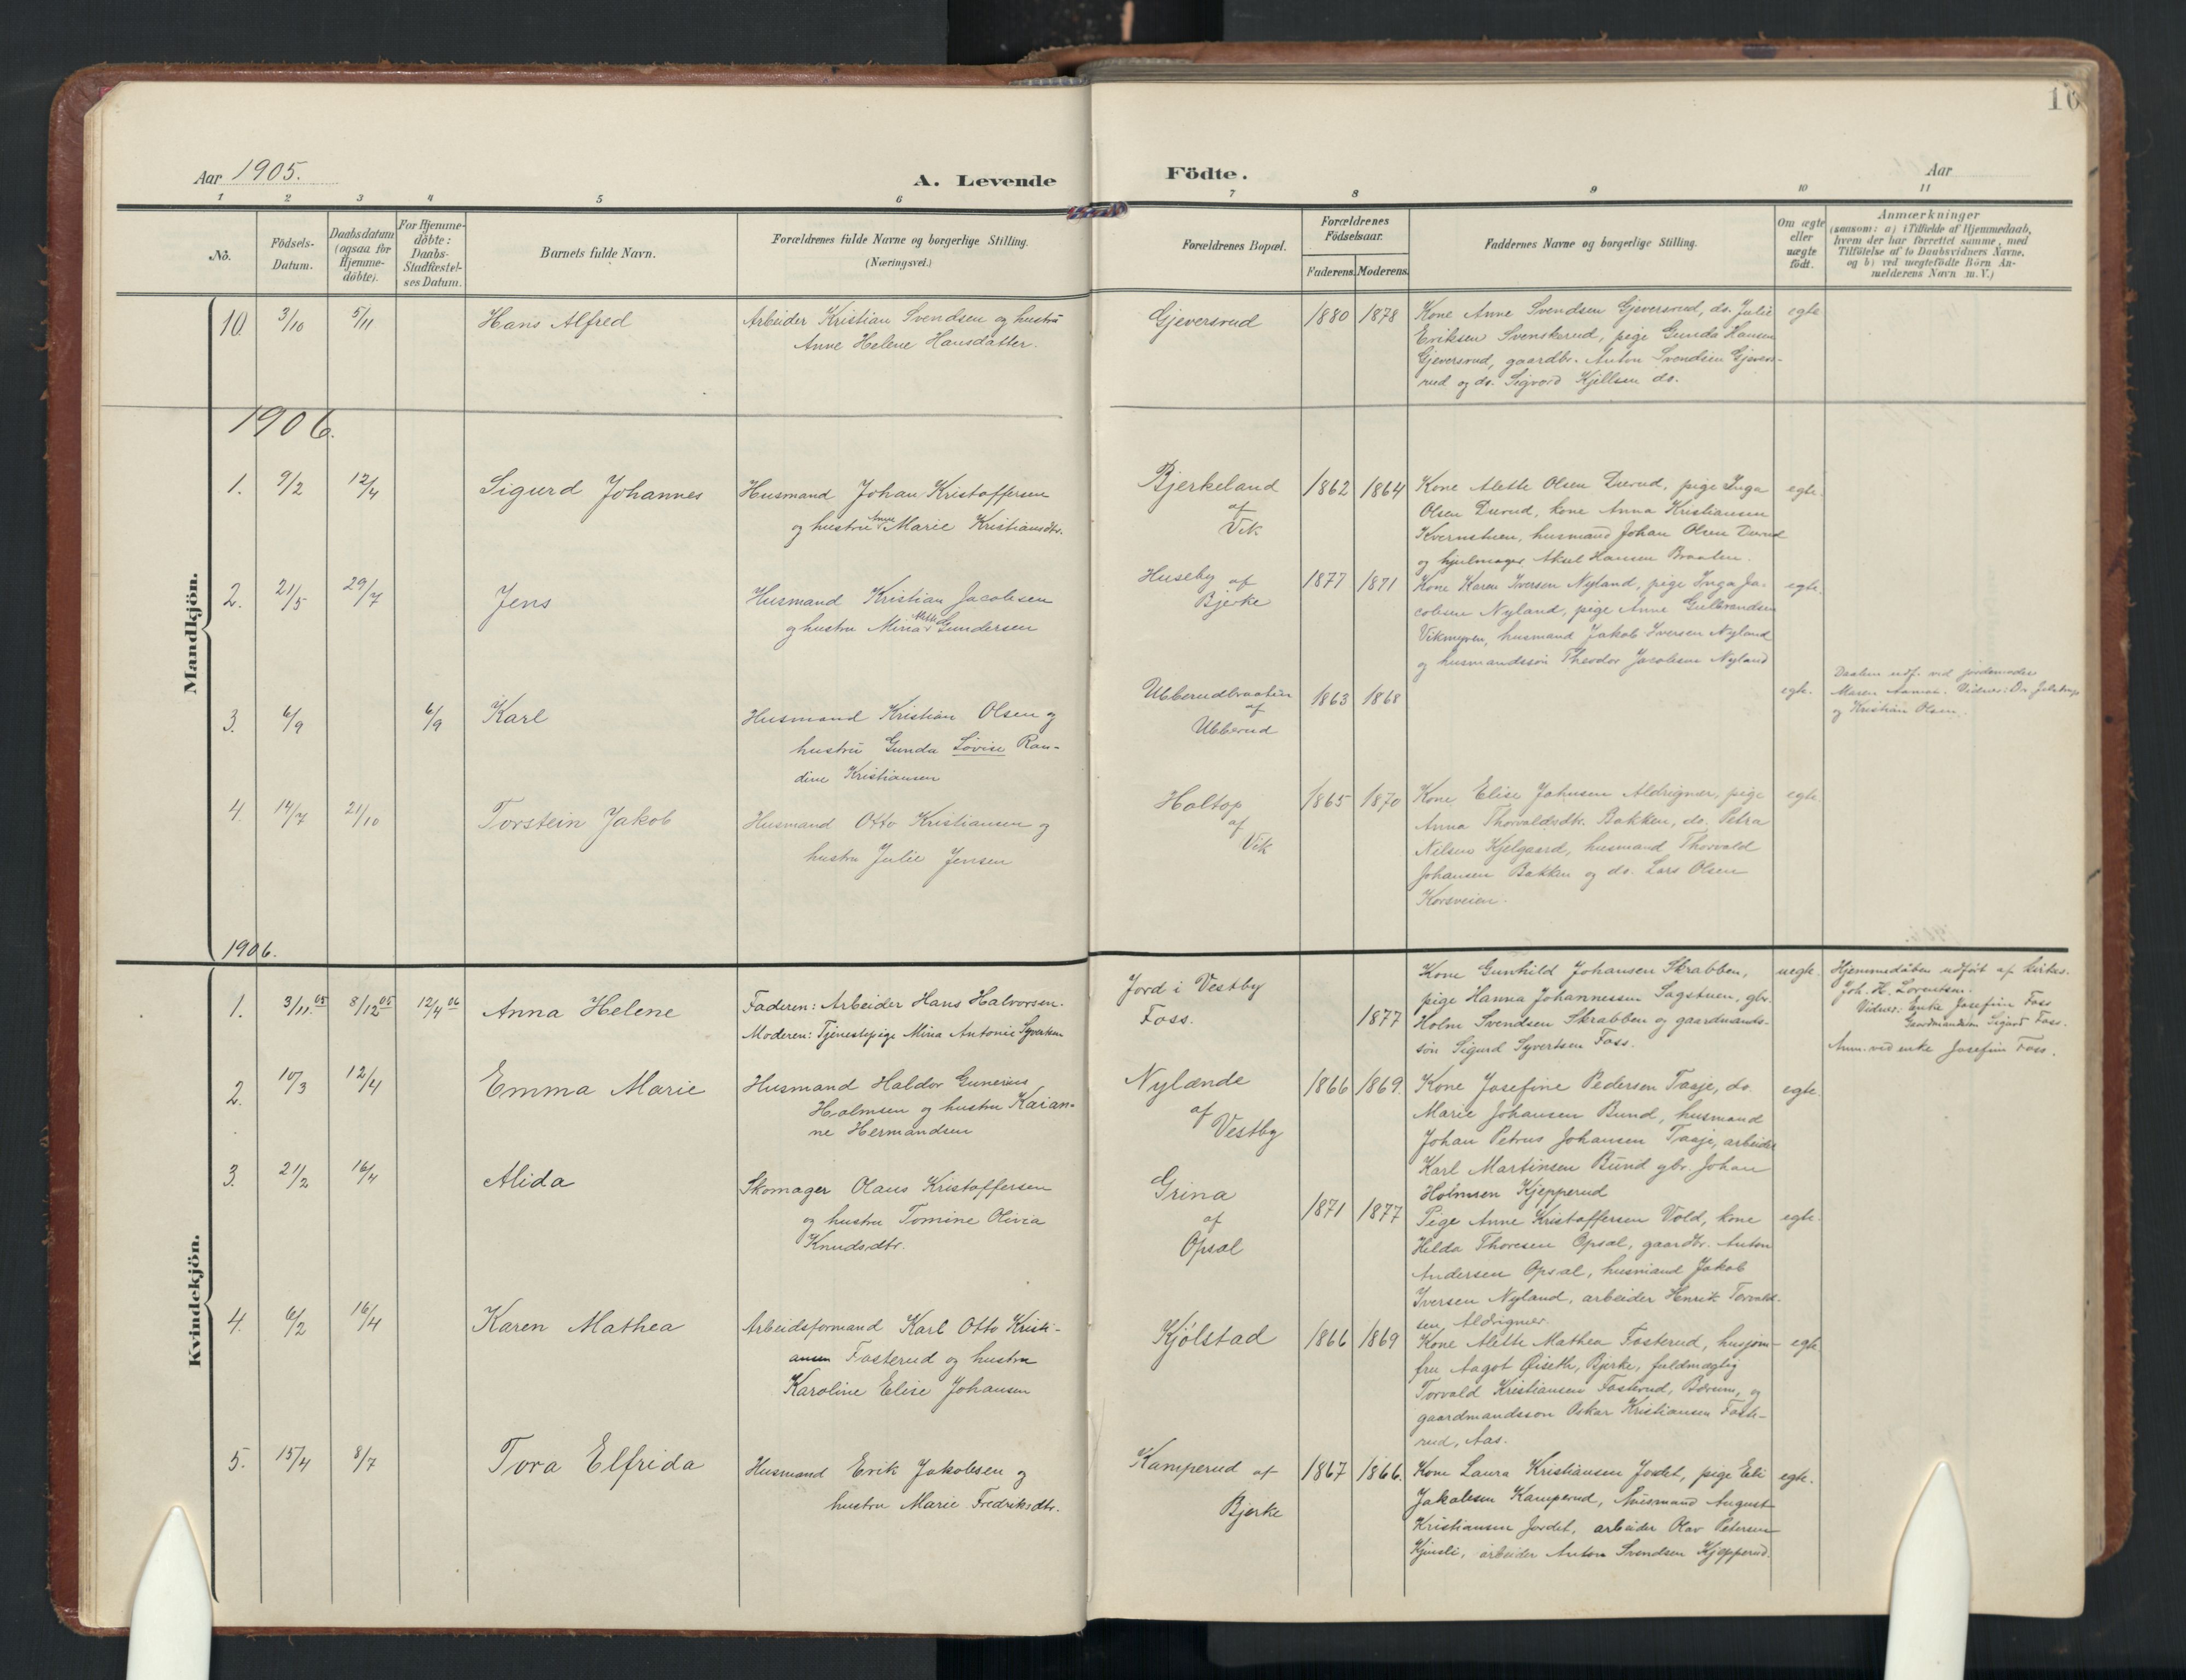 16
Aar 1905.
A. Levende
Födte.
Aar
1 2 3 4 5 6 7 8 9 10 11
No.
Födsels-
Datum.
Daabsdatum
(ogsaa for
Hjemme-
döbte).
For Hjemme-
döbte:
Daabs-
Stadfæstel-
ses Datum.
Barnets fulde Navn.
Forældrenes fulde Navne og borgerlige Stilling.
(Næringsvei.)
Forældrenes Bopæl.
Forældrenes
Födselsaar.
Faderens. Moderens.
Faddernes Navne og borgerlige Stilling.
Om ægte
eller
uægte
födt.
Anmærkninger
(saasom: a) i Tilfælde af Hjemmedaab,
hvem der har forrettet samme, med
Tilföielse af to Daabsvidners Navne,
og b) ved uægtefödte Börn An-
melderens Navn m. V.)
Mandkjön.
10. 3/10 5/11 Hans Alfred
Arbeider Kristian Svendsen og hustru
Anne Helene Hansdatter.
Gjeversrud 1880 1878
Kone Anne Svendsen Gjeversrud, do. Julie
Eriksen Svenskerud, pige Gunda Hansen
Gjeversrud, gaardbr. Anton Svendsen Gjevers-
rud og do. Sigvard Kjellsen do.
egte
1906.
1. 9/2 12/4 Sigurd Johannes
Husmand Johan Kristoffersen
og hustru Anne Marie Kristiansdtr.
Bjerkeland
af
Vik
1862 1864
Kone Alette Olsen Durud, pige Inga
Olsen Durud, kone Anna Kristiansen
Kvernstuen, husmand Johan Olsen Durud
og hjulmager Aksel Hansen Braaten.
egte.
2. 21/5 29/7 Jens
Husmand Kristian Jacobsen
og hustru Mina Mathea Gundersen
Huseby af
Bjerke
1877 1871
Kone Karen Iversen Nyland, pige Inga Ja-
cobsen Nyland, pige Anne Gulbrandsen
Vikmyren, husmand Jakob Iversen Nyland
og husmandssön Theodor Jacobsen Nyland
egte.
3. 6/9 6/9 Karl
Husmand Kristian Olsen og
hustru Gunda Lovise Ran-
dine Kristiansen
Ubberudbraaten
af
Ubberud
1863 1868
egte.
Daaben udf. ved jordemoder
Maren Aamot. Vidner: Dr. Jelstrup
og Kristian Olsen.
4. 14/7 21/10 Torstein Jakob
Husmand Otto Kristiansen og
hustru Julie Jensen
Holtop
af
Vik
1865 1870
Kone Elise Johnsen Aldrigmer, pige
Anna Thorvaldsdtr. Bakken, do. Petra
Nilsen Kjelgaard, husmand Thorvald
Johansen Bakken og do. Lars Olsen
Korsveien.
egte
1906.
Kvindekjön.
1. 3/11.05 8/12 05 12/4 06 Anna Helene
Faderen: Arbeider Hans Halvorsen.
Moderen: Tjenestepige Mina Antonie Syvertsen
Jord i Vestby
Foss.
1877
Kone Gunhild Johansen Skrabben,
pige Hanna Johannessen Sagstuen, gbr.
Holm Svendsen Skrabben og gaardmands-
sön Sigurd Syvertsen Foss.
uegte.
Hjemmedåben udfört af kirkes.
Joh. H. Lorentsen.
Vidner: Enke Josefine Foss
Gaardmandssön Sigurd Foss.
Anm. ved enke Josefine Foss.
2. 10/3 12/4 Emma Marie
Husmand Haldor Gunerius
Holmsen og hustru Karian-
ne Hermandsen
Nylænde
af
Vestby
1866 1869.
Kone Josefine Pedersen Taaje, do.
Marie Johansen Bund, husmand
Johan Petrus Johansen Taaje, arbeider
Karl Martinsen Bund gbr. Johan
Holmsen Kjepperud
egte.
3. 21/2 16/4 Alida
Skomager Olaus Kristoffersen
og hustru Tomine Olivia
Knudsdtr.
Grina
af
Opsal
1871 1877
Pige Anne Kristoffersen Vold, kone
Hilda Thoresen Opsal, gaardbr. Anton
Andersen Opsal, husmand Jakob
Iversen Nyland, arbeider Henrik Torvald-
sen Aldrigmer.
egte.
4. 6/2 16/4 Karen Mathea
Arbeidsformand Karl Otto Kristi-
ansen Fosterud og hustru
Karoline Elise Johansen
Kjölstad 1866 1869
Kone Alette Mathea Fosterud, husjom-
fru Aagot Öiseth, Bjerke, fuldmægtig
Torvald Kristiansen Fosterud, Bærum, og
gaardmandsson Oskar Kristiansen Foste-
rud, Aas.
egte
5. 15/4 8/7 Tora Elfrida
Husmand Erik Jakobsen og
hustru Marie Fredriksdtr.
Kamperud af
Bjerke
1867 1866.
Kone Laura Kristiansen Jordet, pige Eli
Jakobsen Kamperud, husmand August
Kristiansen Jordet, arbeider Olav Petersen
Kjinsli, arbeider Anton Svendsen Kjepperud.
egte.